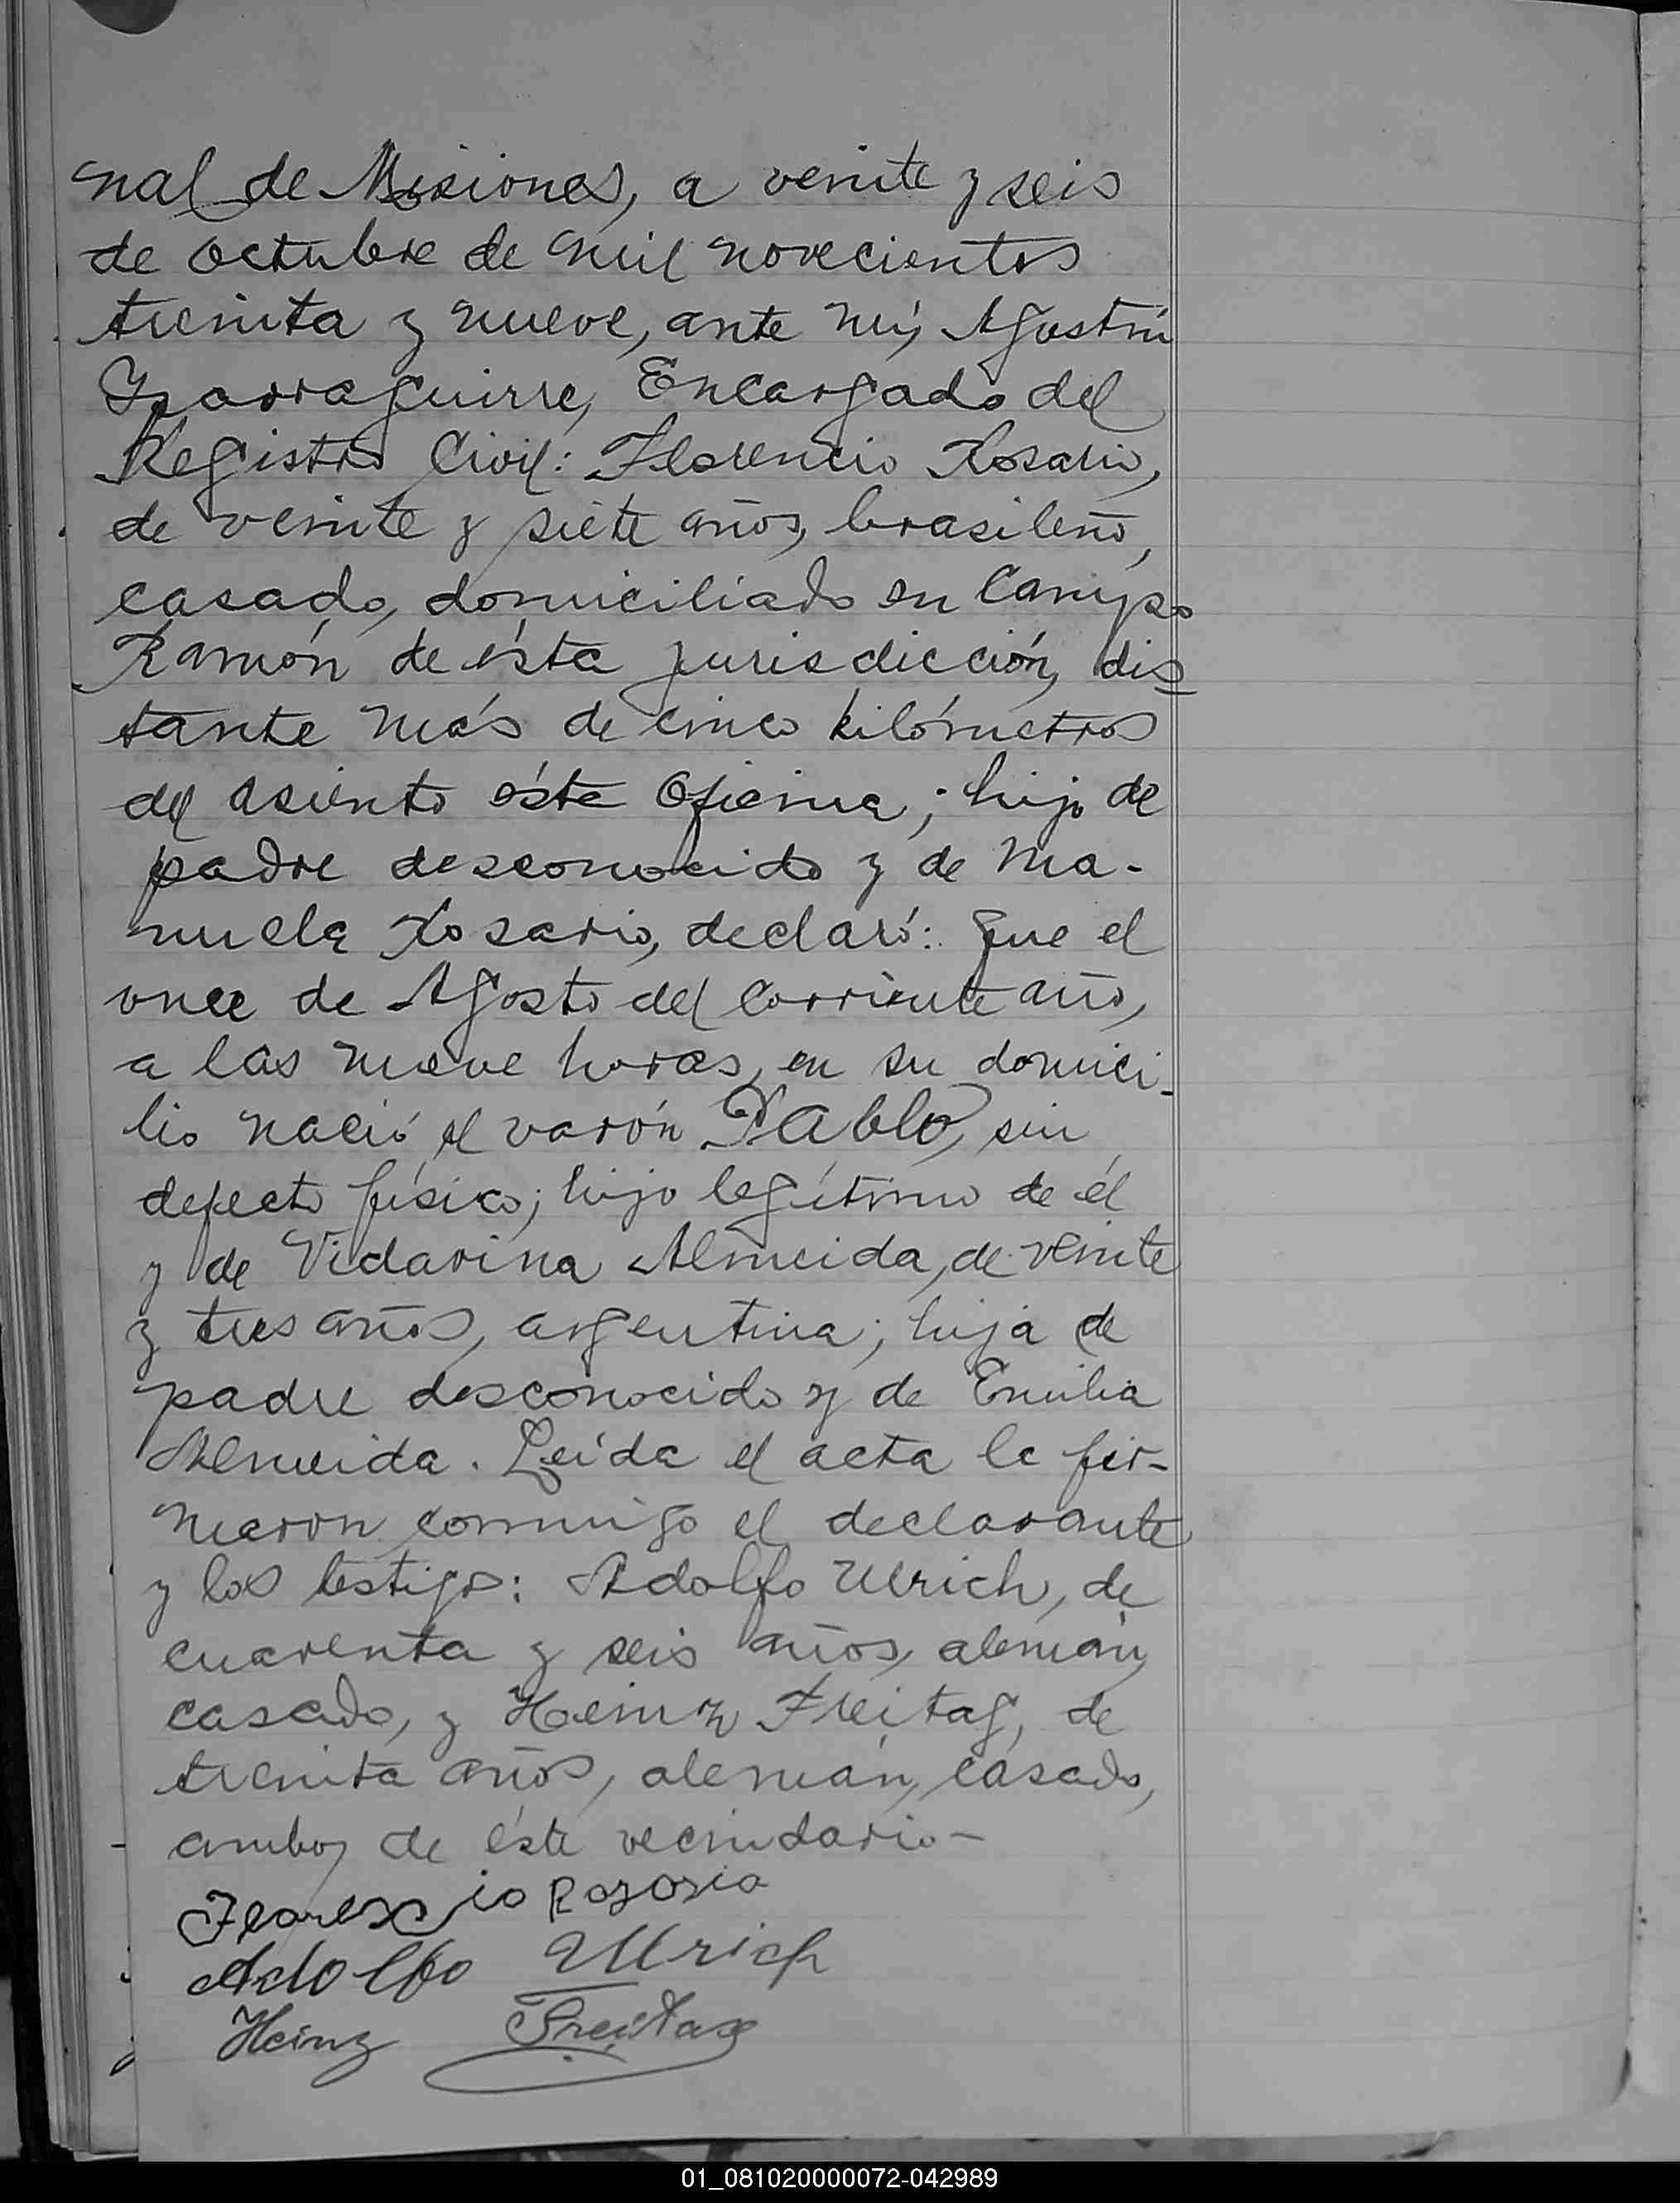 nal de Misiones, a veinte y seis
de octubre de mil novecientos
treinta y nueve, ante mí, Agustín
Yparraguirre, Encargado del
Registro Civil: Florencio Rosario,
de veinte y siete años, brasileño,
casado, domiciliado en Campo
Ramón de ésta jurisdicción, dis
tante más de cinco kilómetros
del asiento ésta Oficina; hijo de
padre desconocido y de Ma-
nuela Rosario, declaró: Que el
once de Agosto del corriente año,
a las nueve horas, en su domici-
lio nació el varón Pablo, sin
defecto físico; hijo legítimo de él
y de Vidarina Almeida, de veinte
y tres años, argentina; hija de
padre desconocido y de Emilia
Almeida. Leída el acta la fir-
maron conmigo el declarante
y los testigos: Adolfo Ulrich, de
cuarenta y seis años, alemán,
casado, y Heinz Freitag, de
treinta años, alemán, casado,
ambos de éste vecindario-
Florencio Rosario
Adolfo Ullrich
Heinz Freitag
01_081020000072-042989